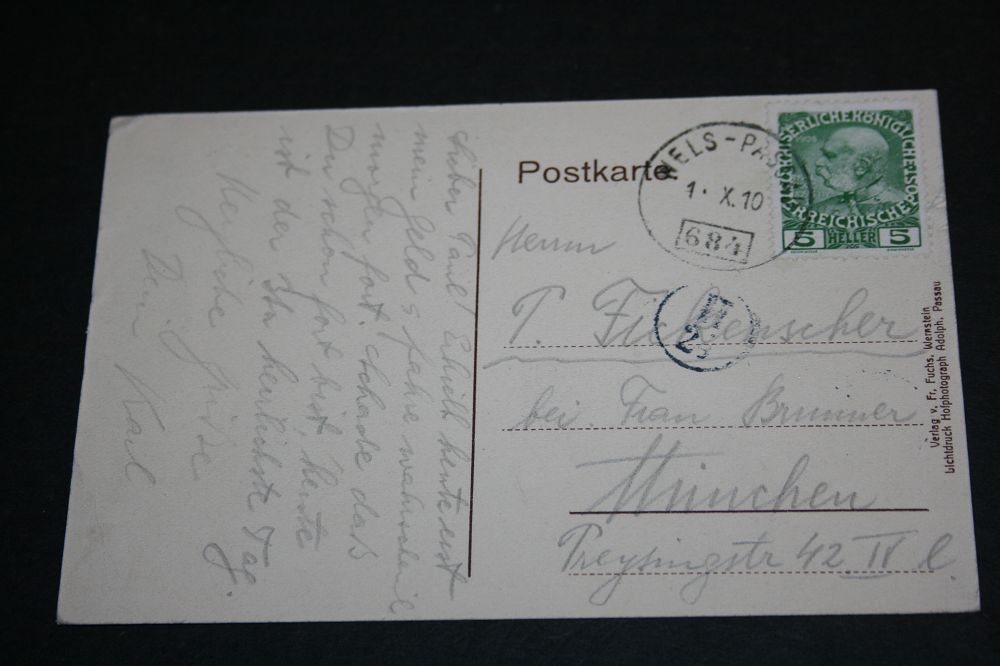 Postkarte
WELS-PASSAU
1. X. 10
684
KAISERLICHEKÖNIGLICHE
ÖSTERREICHISCHEPOST
1908
5 HELLER 5
Herrn
P. Fickenscher
bei Frau Brunner
München
Preysingstr 42 IV l.
Lieber Paul! Erhielt heute erst
mein Geld & fahre wahrscheinl
morgen fort. Schade daß
Du schon fort bist, heute
ist der herrlichste Tag.
Herzliche Grüße
Dein Karl
Verlag v. Fr. Fuchs, Wernstein
Lichtdruck Hofphotograph Adolph, Passau